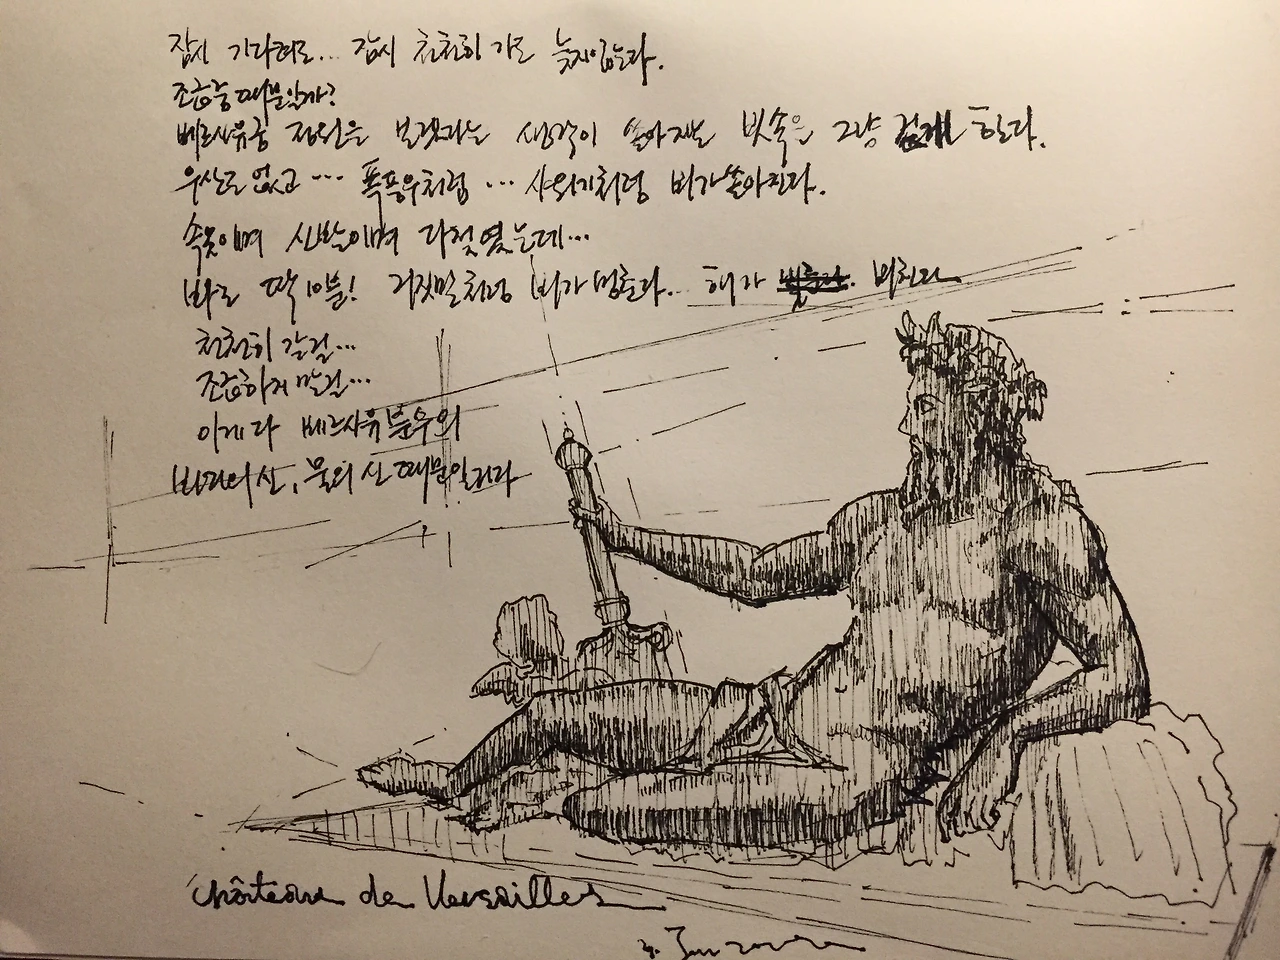 잠시 기다려도... 잠시 천천히 가도 늦지않는다.
조급증때문일까?
베르사유궁 정원을 보겠다는 생각이 쏟아지는 빗속을 그냥 걷게 한다.
우산도 없고... 폭풍우처럼... 샤워기처럼 비가쏟아진다.
속옷이며 신발이며 다젖었는데...
바로 딱 10분! 거짓말처럼 비가멈춘다... 해가 비친다
천천히 갈걸...
조급하지 말걸...
이게 다 베르사유분수의
바다의신, 물의 신 때문일러라
châteaux de Versailles